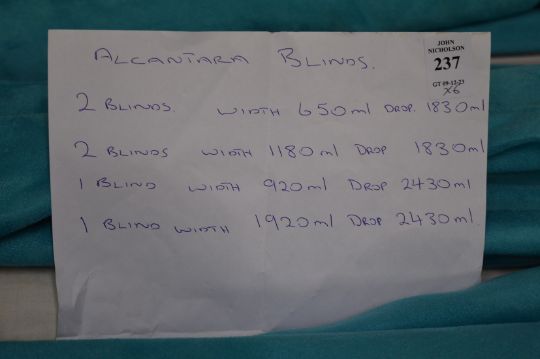 ALCANTARA BLINDS.
JOHN
NICHOLSON
237
GT 19-12-23
X6
2 BLINDS. WIDTH 650ml DROP. 1830ml
2 BLINDS WIDTH 1180ml DROP 1830ml
1 BLIND WIDTH 920ml DROP 2430ml
1 BLIND WIDTH 1920ml DROP 2430ml.